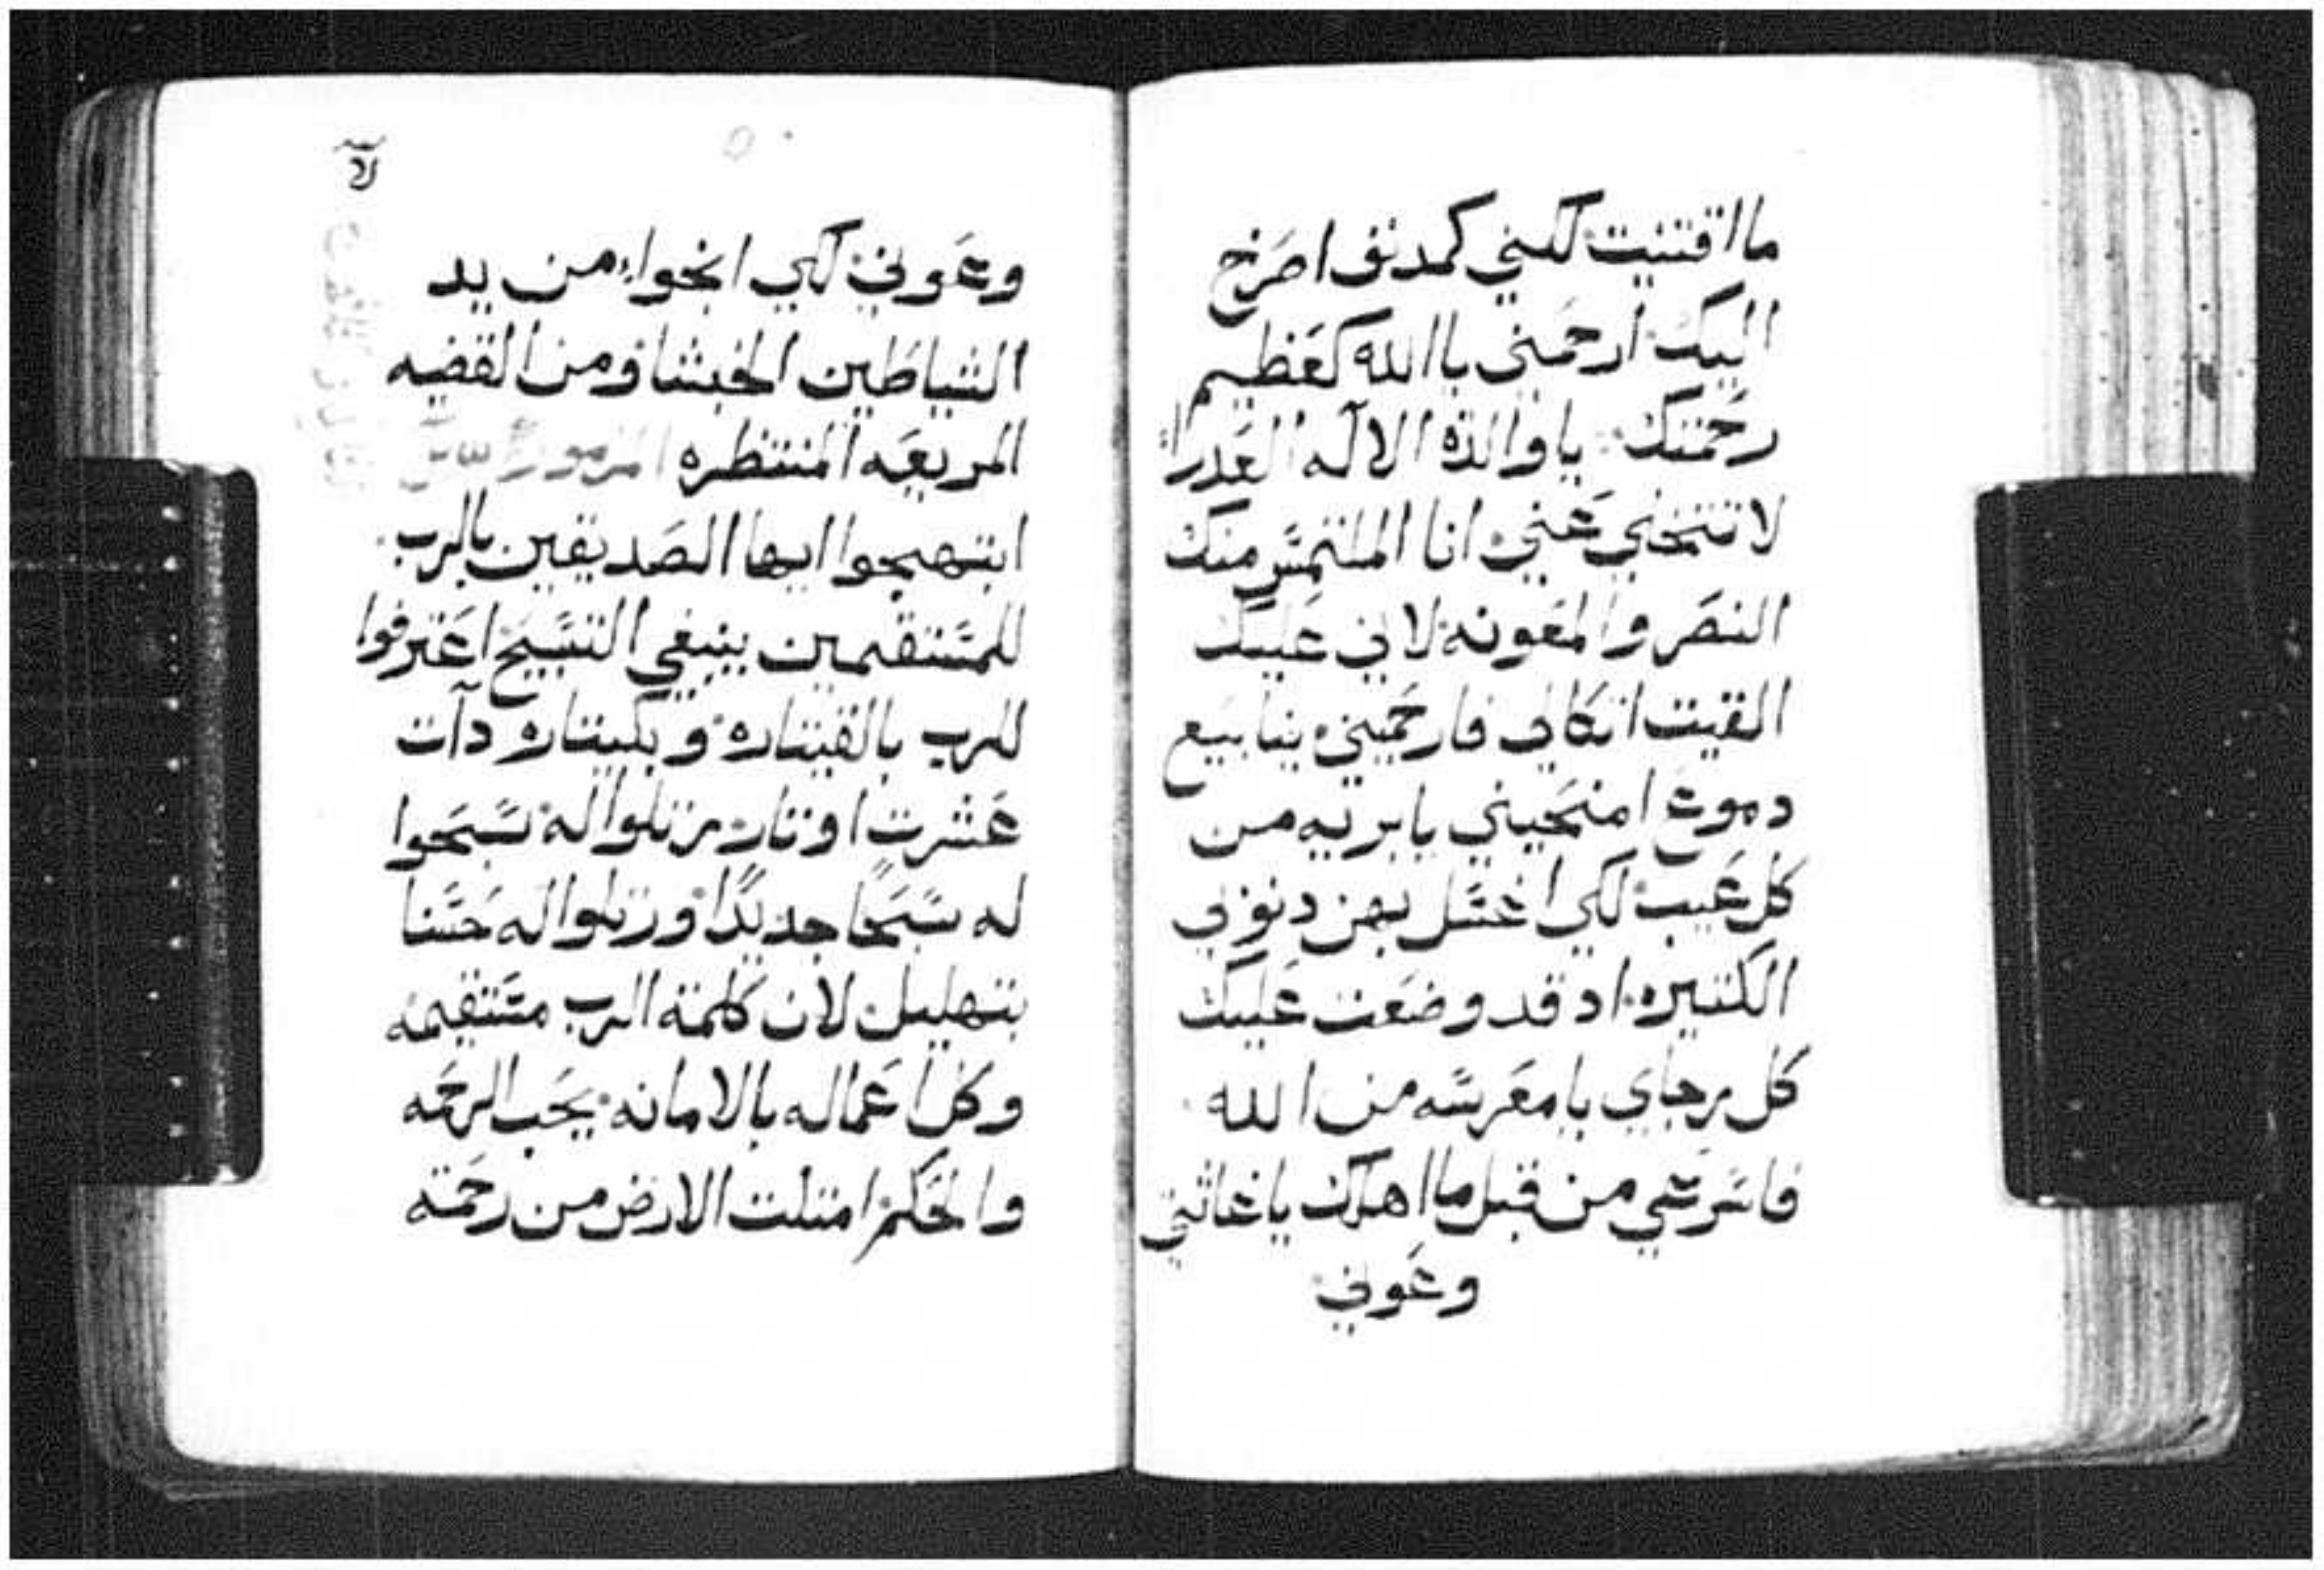 ما اقتنيت لكنني كمدنف اصرخ
اليك ارحمني ياالله كعظيم
رحمتك ياوالدة الاله العدرا
لا تتخلي عني انا الملتمس منك
النصر والمعونه لاني عليك
القيت اتكالي فارحميني ينابيع
دموع امنحيني يابريه من
كل عيب لكي اغسل بهن دنوبي
الكتيره اد قد وضعت عليك
كل رجاي يا معرسه من الله
فاسرعي من قبل ما اهلك ياغاتتي
وعوني
وعوني لكي انجوا من يد
الشياطين الخبثا ومن القضيه
المريعه المنتظره المزمور
ابتهجوا ايها الصديقين بالرب
للمستقيمين ينبغي التسبيح اعترفوا
للرب بالقيتاره وبكيتاره دات
عشرت اوتار رتلوا له سبحوا
له سبحا جديدًا ورتلوا له حسنا
بتهليل لان كلمة الرب مستقيمه
وكل اعماله بالامانه يحب الرحمه
والحكم امتلت الارض من رحمته